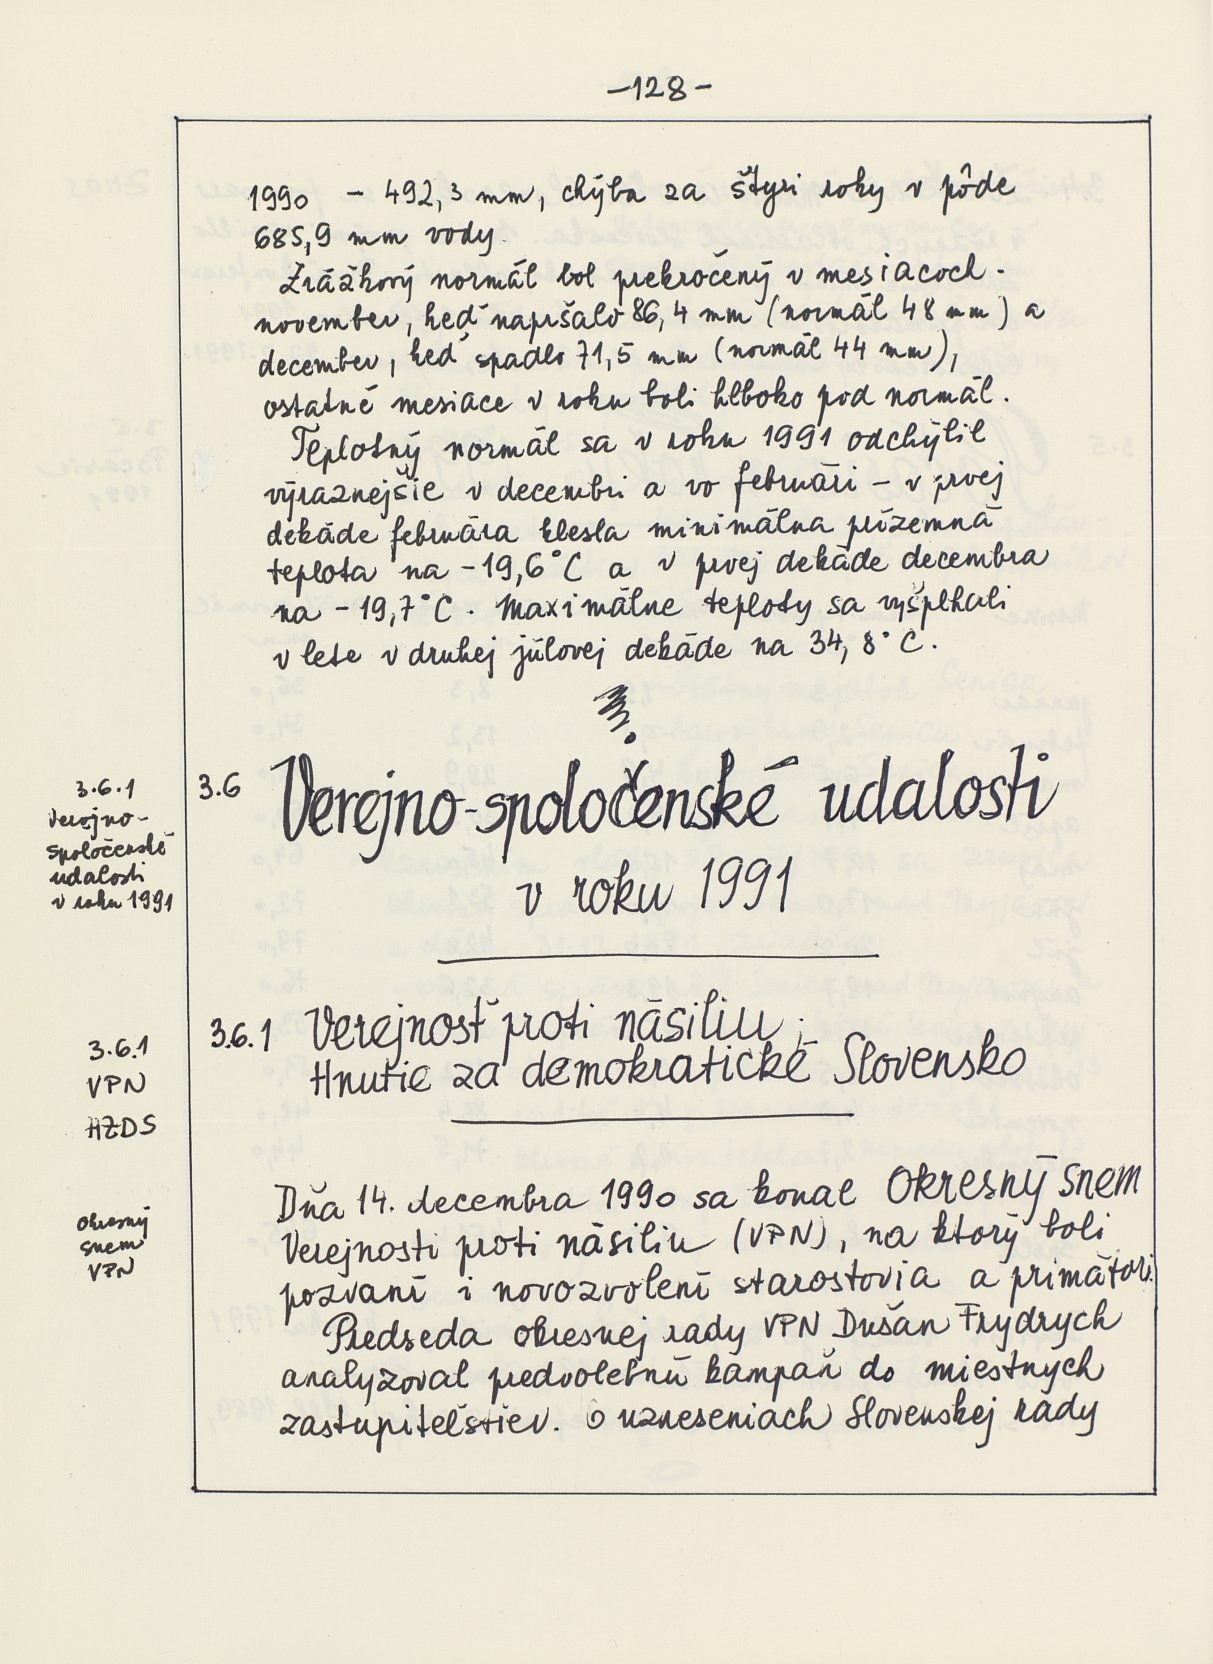 -128-
1990 - 492,3 mm, chýba za štyri roky v pôde
685,9 mm vody.
Zrážkový normál bol prekročený v mesiacoch.
november, keď napršalo 86,4 mm (normál 48 mm) a
december, keď spadlo 71,5 mm (normál 44 mm),
ostatné mesiace v roku boli hlboko pod normál.
Teplotný normál sa v roku 1991 odchýlil
výraznejšie v decembri a vo februári - v prvej
dekáde februára klesla minimálna prízemná
teplota na -19,6°C a v prvej dekáde decembra
na -19,7°C. Maximálne teploty sa vyšplhali
v lete v druhej júlovej dekáde na 34,8°C.
3.6.1
Verejno-
spoločenské
udalosti
v roku 1991
3.6 Verejno-spoločenské udalosti
v roku 1991
3.6.1
VPN
HZDS
3.6.1 Verejnosť proti násiliu;
Hnutie za demokratické Slovensko
Okresný
snem
VPN
Dňa 14. decembra 1990 sa konal Okresný snem
Verejnosti proti násiliu (VPN), na ktorý boli
pozvaní i novozvolení starostovia a primátori.
Predseda okresnej rady VPN Dušan Frydrych
analyzoval predvolebnú kampaň do miestnych
zastupiteľstiev. O uzneseniach Slovenskej rady